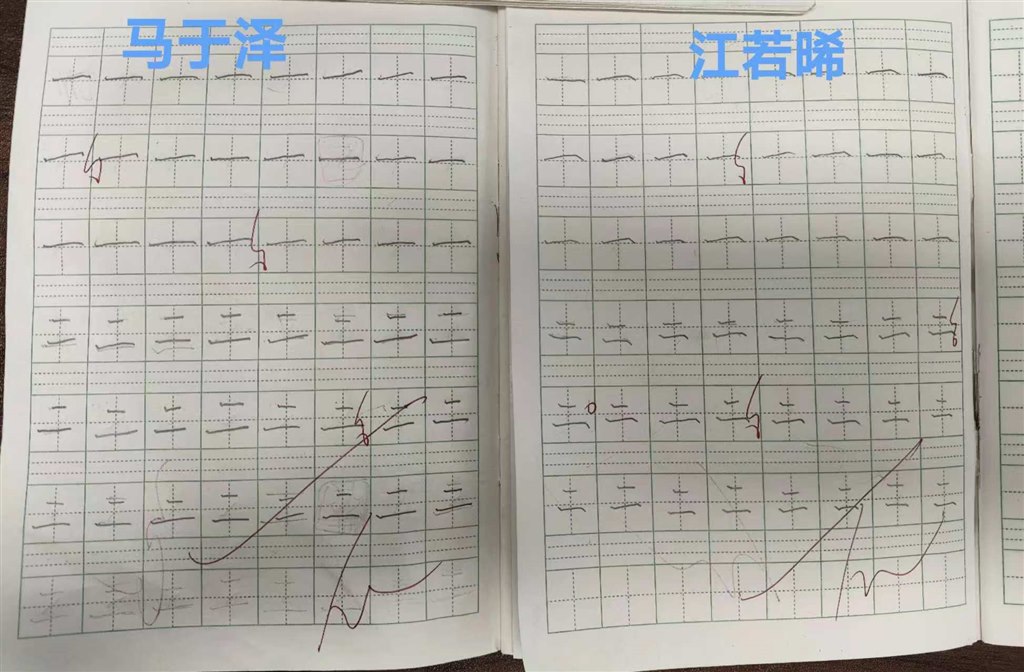 马于泽
一 一 一 一 一 一 一 一
一 一 一 一 一 一 一 一
一 一 一 一 一 一 一 一
二 二 二 二 二 二 二 二
二 二 二 二 二 二 二 二
二 二 二 二 二 二 二 二
江若晞
一 一 一 一 一 一 一 一
一 一 一 一 一 一 一 一
一 一 一 一 一 一 一 一
二 二 二 二 二 二 二 二
二 二 二 二 二 二 二 二
二 二 二 二 二 二 二 二